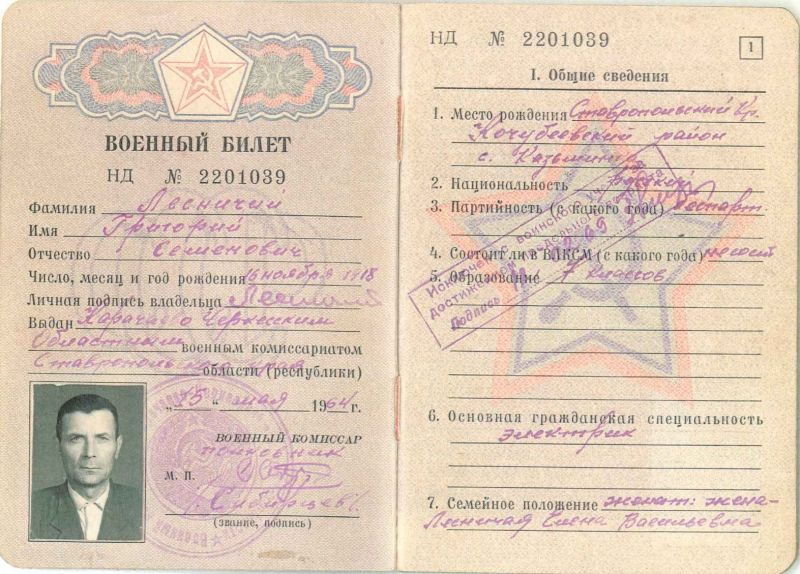 ВОЕННЫЙ БИЛЕТ
НД № 2201039
Фамилия Лесничий
Имя Григорий
Отчество Семенович
Число, месяц и год рождения 16 ноября 1918
Личная подпись владельца
Выдан Карачаево Черкесским
Областным военным комиссариатом
области (республики)
„25“ мая 1964 г.
ВОЕННЫЙ КОМИССАР
полковник
М. П.
(звание, подпись)
НД № 2201039
1
I. Общие сведения
1. Место рождения Ставропольский кр.
Кочубеевский район
с.
2. Национальность русский
3. Партийность (с какого года) беспарт.
4. Состоит ли в ВЛКСМ (с какого года) не сост
5. Образование 7 классов
Исключен с воинского учета
достижением предельного возраста
Подпись
6. Основная гражданская специальность
электрик
7. Семейное положение женат: жена-
Лесничая Елена Васильевна